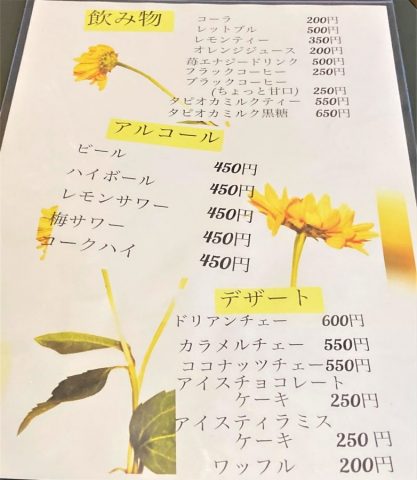 飲み物
コーラ 200円
レットブル 500円
レモンティー 350円
オレンジジュース 200円
苺エナジードリンク 500円
フラックコーヒー 250円
ブラックコーヒー
(ちょっと甘口) 250円
タピオカミルクティー 550円
タピオカミルク黒糖 650円
アルコール
ビール 450円
ハイボール 450円
レモンサワー 450円
梅サワー 450円
コークハイ 450円
デザート
ドリアンチェー 600円
カラメルチェー 550円
ココナッツチェー 550円
アイスチョコレート
ケーキ 250円
アイスティラミス
ケーキ 250円
ワッフル 200円